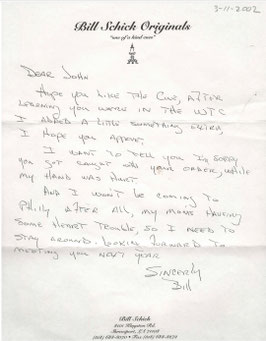 3-11-2002
Bill Schick Originals
"one of a kind cues"
Dear John
Hope you like the Cue, After
learning you were in the WTC
I added a little something extra,
I hope you approve.
I want to tell you I'm sorry
you got caught in your order, while
my hand was hurt.
And I won't be coming to
Philly after all, my moms having
some heart trouble, so I need to
stay around. Looking forward to
meeting you next year
Sincerly
Bill
Bill Schick
Shreveport, LA